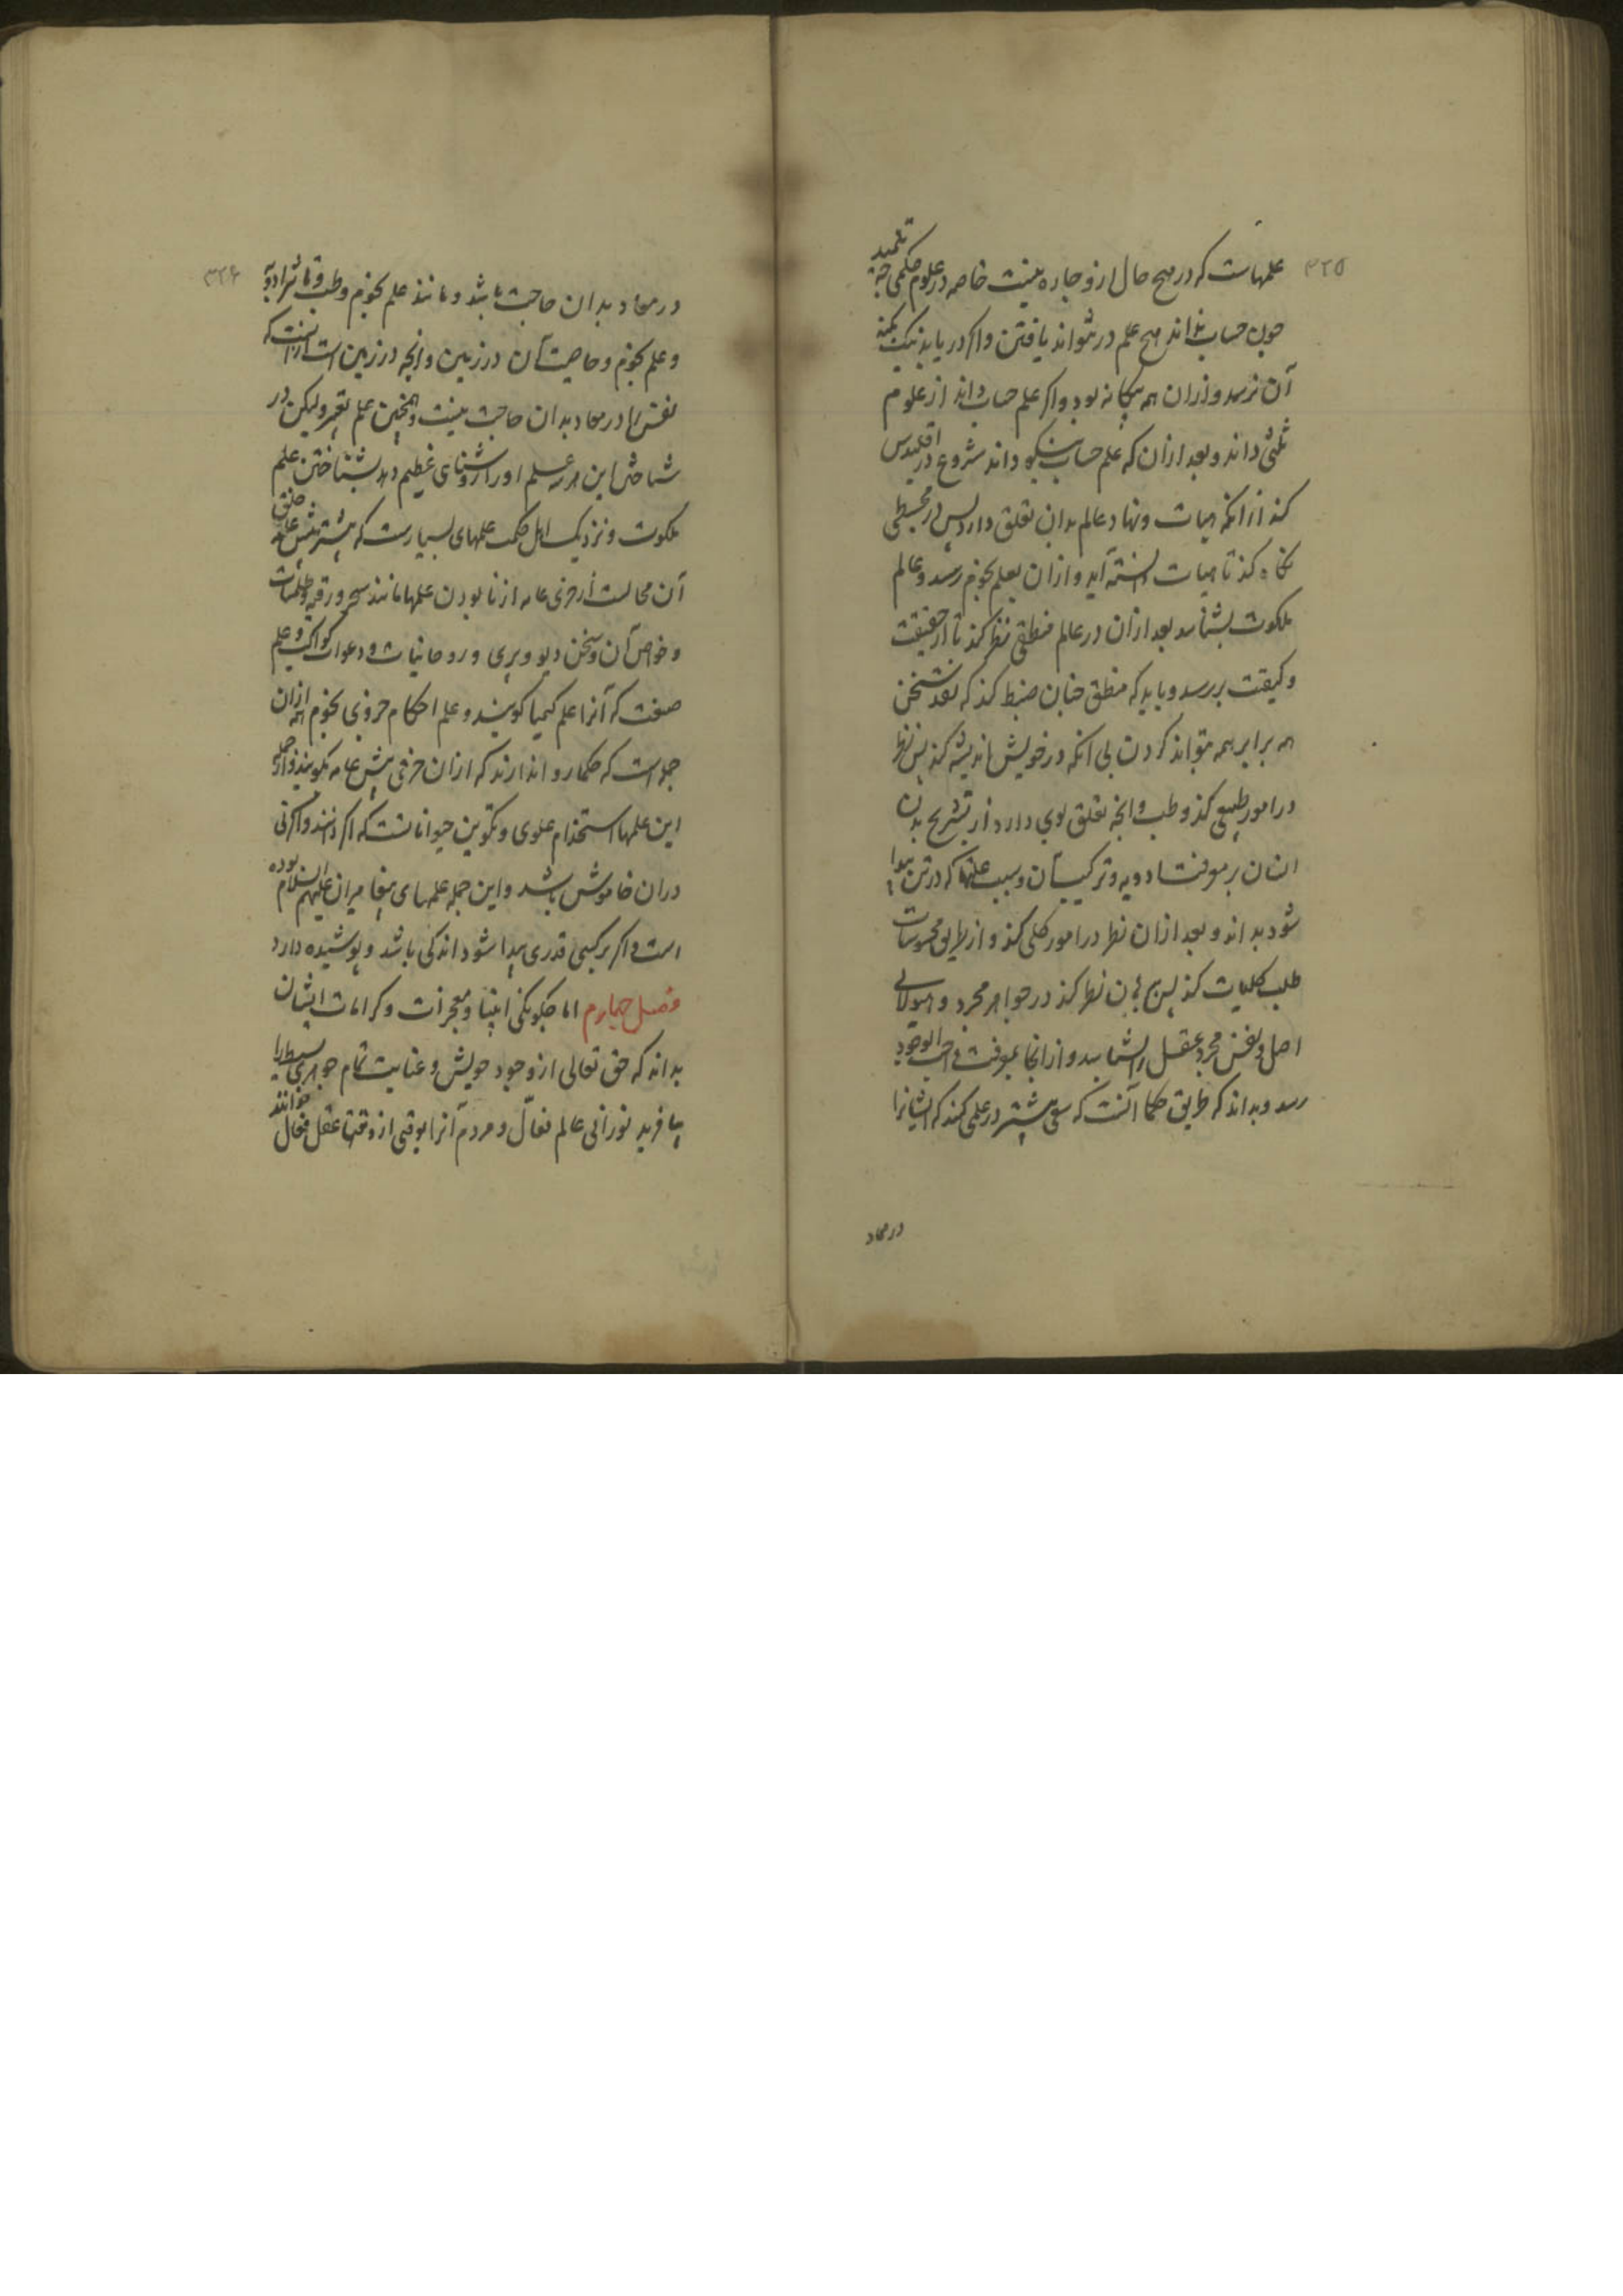 ۳۲۵
علمهاست که در هیچ حال ازو چاره نیست خاصه در علوم حکمی چه تلمیذ
چون حساب نداند هیچ علم در نتواند یافتن واکر دریابد نیک بکنه
آن نرسد وازان همه بیکانه بود واکر علم حساب داند از علوم
ثلثی داند وبعد ازان که علم حساب نیکو داند شروع در اقلیدس
کند از انکه هیات ونهاد عالم بدان تعلق دارد پس در مجسطی
نکاه کند تا هیات دانسته آید وازان بعلم نجوم رسد وعالم
ملکوت بشناسد بعد ازان در عالم منطقی نظر کند تا از حقیقت
وکیفیت بررسد وباید که منطق چنان ضبط کند که نقد سخن
همه برابر همه بتواند کردن بی انکه در خویش اندیشه کند پس نظر
در امور طبیعی کند وطب وانچه تعلق بوی دارد از تشریح بدن
انسان بر معرفت ادویه وترکیب آن وسبب علتها که در تن پیدا
شود بداند وبعد ازان نظر در امور کلی کند واز طریق محسوسات
طلب کلیات کند پس نظر کند در جواهر مجرد وهیولای
اصل ونفس مجرد وعقل را بشناسد واز انجا بمعرفت واجب الوجود
رسد وبداند که طریق حکما آنست که سعی بیشتر در علمی کنند که ایشانرا
در معاد
۳۲۶
در معاد بدان حاجت باشد ومانند علم نجوم وطب وتاثیر ادویه
وعلم نجوم وخاصیت آن در زمین وانچه در زمین است از انست که
نفس را در معاد بدان حاجت نیست وهمچنین علم تعبیر ولیکن در
شناختن این هر سه علم اورا روشنای عظیم دهد بشناختن علم
ملکوت ونزدیک اهل حکمت علمهای بسیارست که بیشتر پیش عامه خلق
آن محالست از خری عامه از نابودن علمها مانند سحر ورقیه وطلسمات
وخواص آن وسخن دیو وپری وروحانیات ودعوات کواکب وعلم
صنعت که آنرا علم کیمیا کویند وعلم احکام جزوی نجوم همه ازان
جملست که حکما روا ندارند که ازان حرفی پیش عامه بکویند واز جمله
این علمها استخدام علوی وتکوین حیوانانست که اکر دانند واکر نی
دران خاموش باشند واین جمله علمهای پیغامبران علیهم السلام بوده
است واکر بر کسی قدری پیدا شود اندکی باشد وپوشیده دارد
فصل چهارم اما چکونکی انبیا ومعجزات وکرامات ایشان
بدانکه حق تعالی از وجود خویش وعنایت تمام جوهری بسیط را
بیافرید نورانی عالم فعّال ومردم آنرا بوقتی از وقتها عقل فعال خوانند